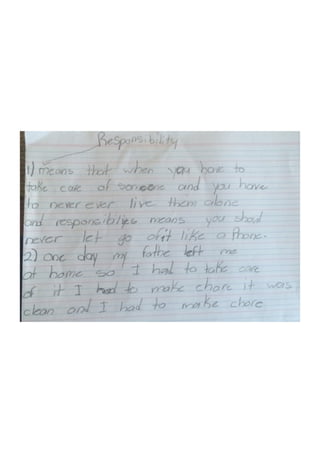 Responsibility
1) means that when you have to
take care of someone and you have
to never ever live them alone
and responcibilyes means you shoud
never let go of it like a Phone.
2) One day my fathe left me
at home so I had to take care
of it I had to make chore it was
clean and I had to make chore